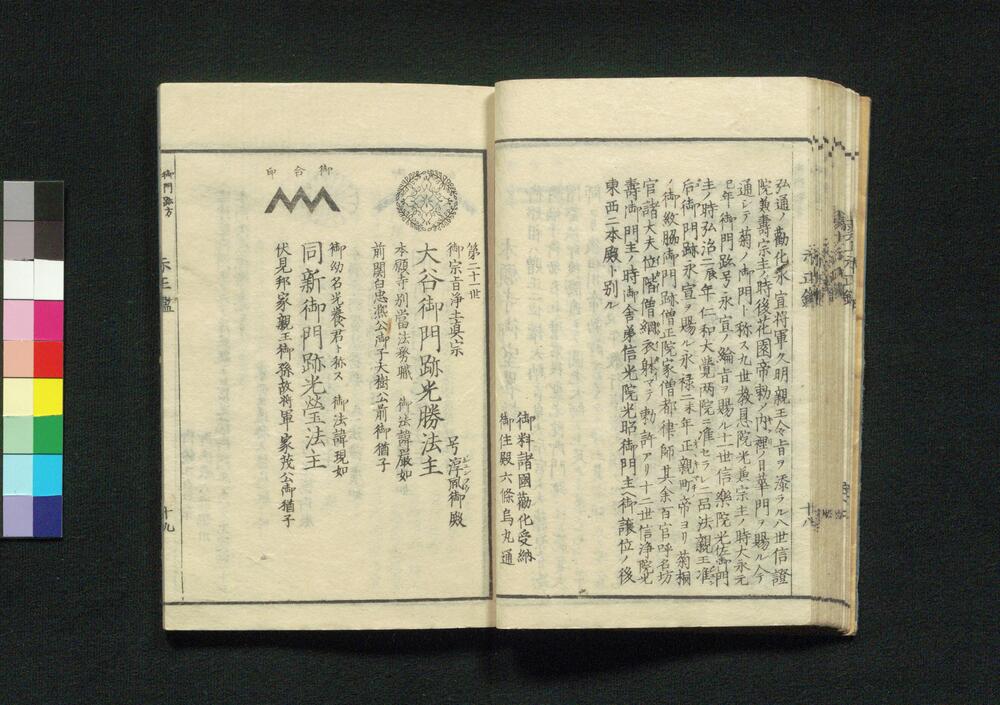 弘通ノ勸化永宣将軍久明親王令旨ヲ添ラル八世信證
院眞壽宗主ノ時後花園帝勅ノ内裡ノ日華門ヲ賜ル今
通シテ菊ノ御門ト称ス九世教恩院光兼宗主ノ時大永元
巳年御門跡号永宣ノ綸旨ヲ賜ル十一世信樂院光佐御門
主ノ時弘治二辰年仁和大覺両院ニ准セラレ二品法親王准
后御門跡永宣ヲ賜ル永禄二未年正親町帝ヨリ菊桐
ノ御紋脇御門跡僧正院家僧都律師其余百官呼名坊
官諸大夫位階僧綱衣躰マテ勅許アリ十二世信浄院光
壽御門主ノ時御舎弟信光院光昭御門主ヘ御譲位ノ後
東西二本殿ト別ル
御料諸國勸化受納
御住殿六條烏丸通
御合印
第二十一世
御宗旨浄土真宗
大谷御門跡光勝法主
号淳風御殿
本願寺別當法務職 御法諱嚴如
前関白忠凞公御子大樹公前御猶子
同新御門跡光瑩法主
御幼名光養君ト称ス 御法諱現如
伏見邦家親王御孫故将軍家茂公御猶子
御門跡方
十九